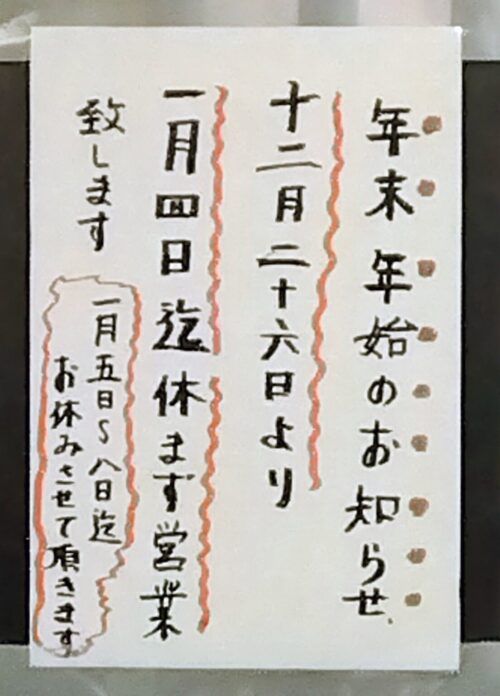 年末年始のお知らせ
十二月二十六日より
一月四日迄休まず営業
致します
一月五日~八日迄
お休みさせて頂きます